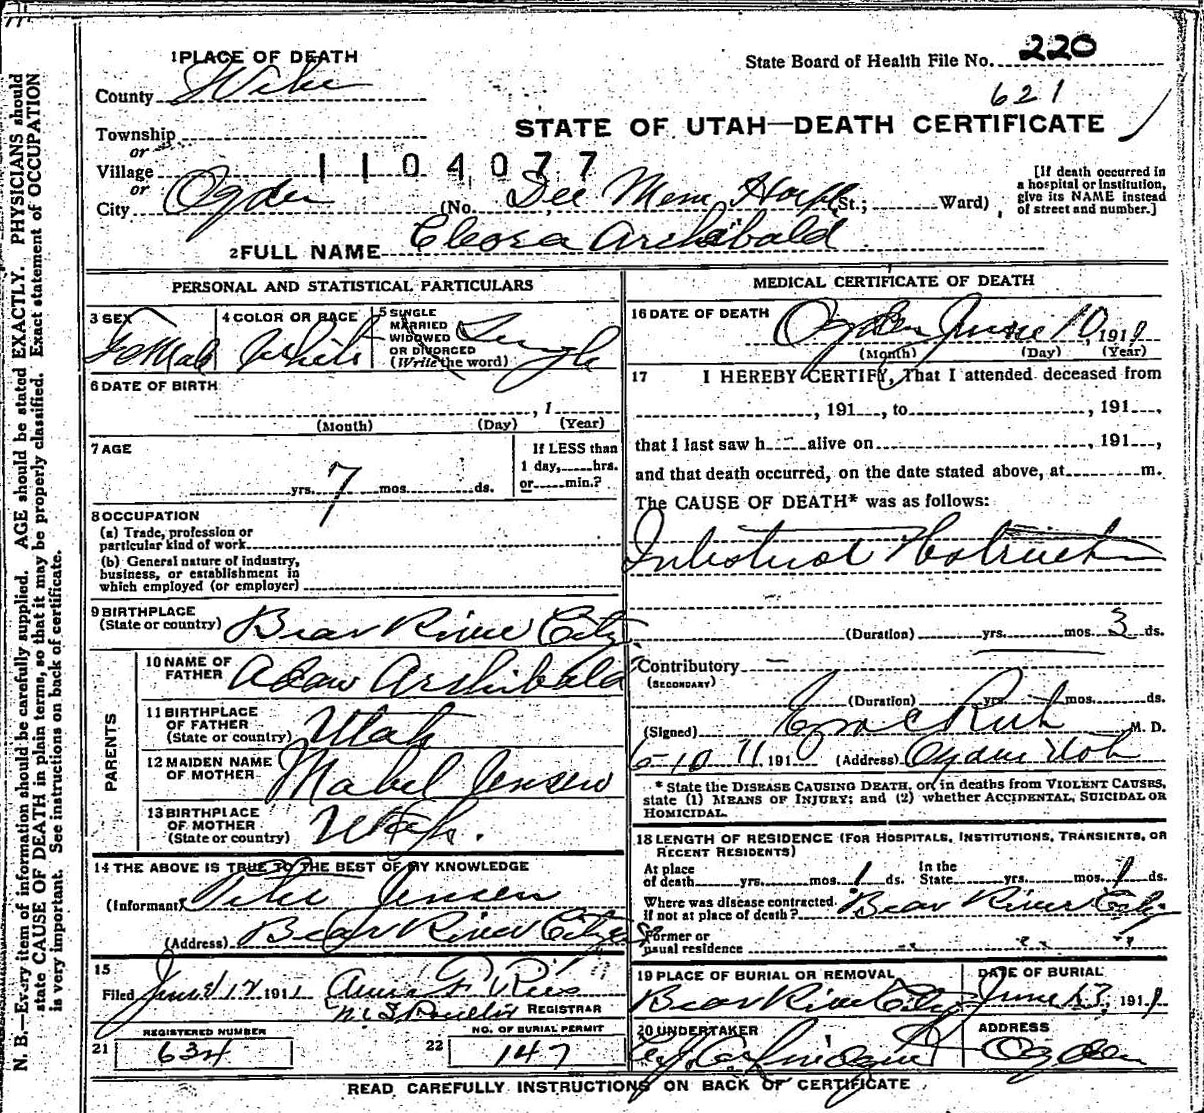 N. B.—Every item of information should be carefully supplied. AGE should be stated EXACTLY. PHYSICIANS should
state CAUSE OF DEATH in plain terms, so that it may be properly classified. Exact statement of OCCUPATION
is very important. See instructions on back of certificate.
1 PLACE OF DEATH
State Board of Health File No. 220
County
621
STATE OF UTAH—DEATH CERTIFICATE
Township
or
Village 1104077
or
City Ogden (No. Dee Mem Hospl St.; Ward)
[If death occurred in
a hospital or institution,
give its NAME instead
of street and number.]
2 FULL NAME Cleora Archibald
PERSONAL AND STATISTICAL PARTICULARS
3 SEX Female
4 COLOR OR RACE White
5 SINGLE
MARRIED
WIDOWED
OR DIVORCED
(Write the word) Single
6 DATE OF BIRTH
, 1
(Month) (Day) (Year)
7 AGE
yrs. 7 mos. ds.
If LESS than
1 day, hrs.
or min.?
8 OCCUPATION
(a) Trade, profession or
particular kind of work
(b) General nature of industry,
business, or establishment in
which employed (or employer)
9 BIRTHPLACE
(State or country) Bear River City
PARENTS
10 NAME OF
FATHER Archibald
11 BIRTHPLACE
OF FATHER
(State or country) Utah
12 MAIDEN NAME
OF MOTHER Mabel Jensen
13 BIRTHPLACE
OF MOTHER
(State or country) Utah.
14 THE ABOVE IS TRUE TO THE BEST OF MY KNOWLEDGE
(Informant) Peter Jensen
(Address) Bear River City
15
Filed June 12 1911
REGISTRAR
REGISTERED NUMBER
21 634
NO. OF BURIAL PERMIT
22 147
MEDICAL CERTIFICATE OF DEATH
16 DATE OF DEATH
Ogden June 10, 1911
(Month) (Day) (Year)
17 I HEREBY CERTIFY, That I attended deceased from
, 191 , to , 191 ,
that I last saw h alive on , 191 ,
and that death occurred, on the date stated above, at m.
The CAUSE OF DEATH* was as follows:
(Duration) yrs. mos. 3 ds.
Contributory
(SECONDARY)
(Duration) yrs. mos. ds.
(Signed) Ezra C Rich M. D.
6-10 11 191 (Address) Ogden Utah
* State the DISEASE CAUSING DEATH, or, in deaths from VIOLENT CAUSES,
state (1) MEANS OF INJURY; and (2) whether ACCIDENTAL, SUICIDAL OR
HOMICIDAL.
18 LENGTH OF RESIDENCE (FOR HOSPITALS, INSTITUTIONS, TRANSIENTS, OR
RECENT RESIDENTS)
At place
of death yrs. mos. 1 ds.
In the
State yrs. mos. 1 ds.
Where was disease contracted
If not at place of death? Bear River City
Former or
usual residence
19 PLACE OF BURIAL OR REMOVAL
Bear River City
DATE OF BURIAL
June 13, 1911
20 UNDERTAKER
ADDRESS
Ogden
READ CAREFULLY INSTRUCTIONS ON BACK OF CERTIFICATE